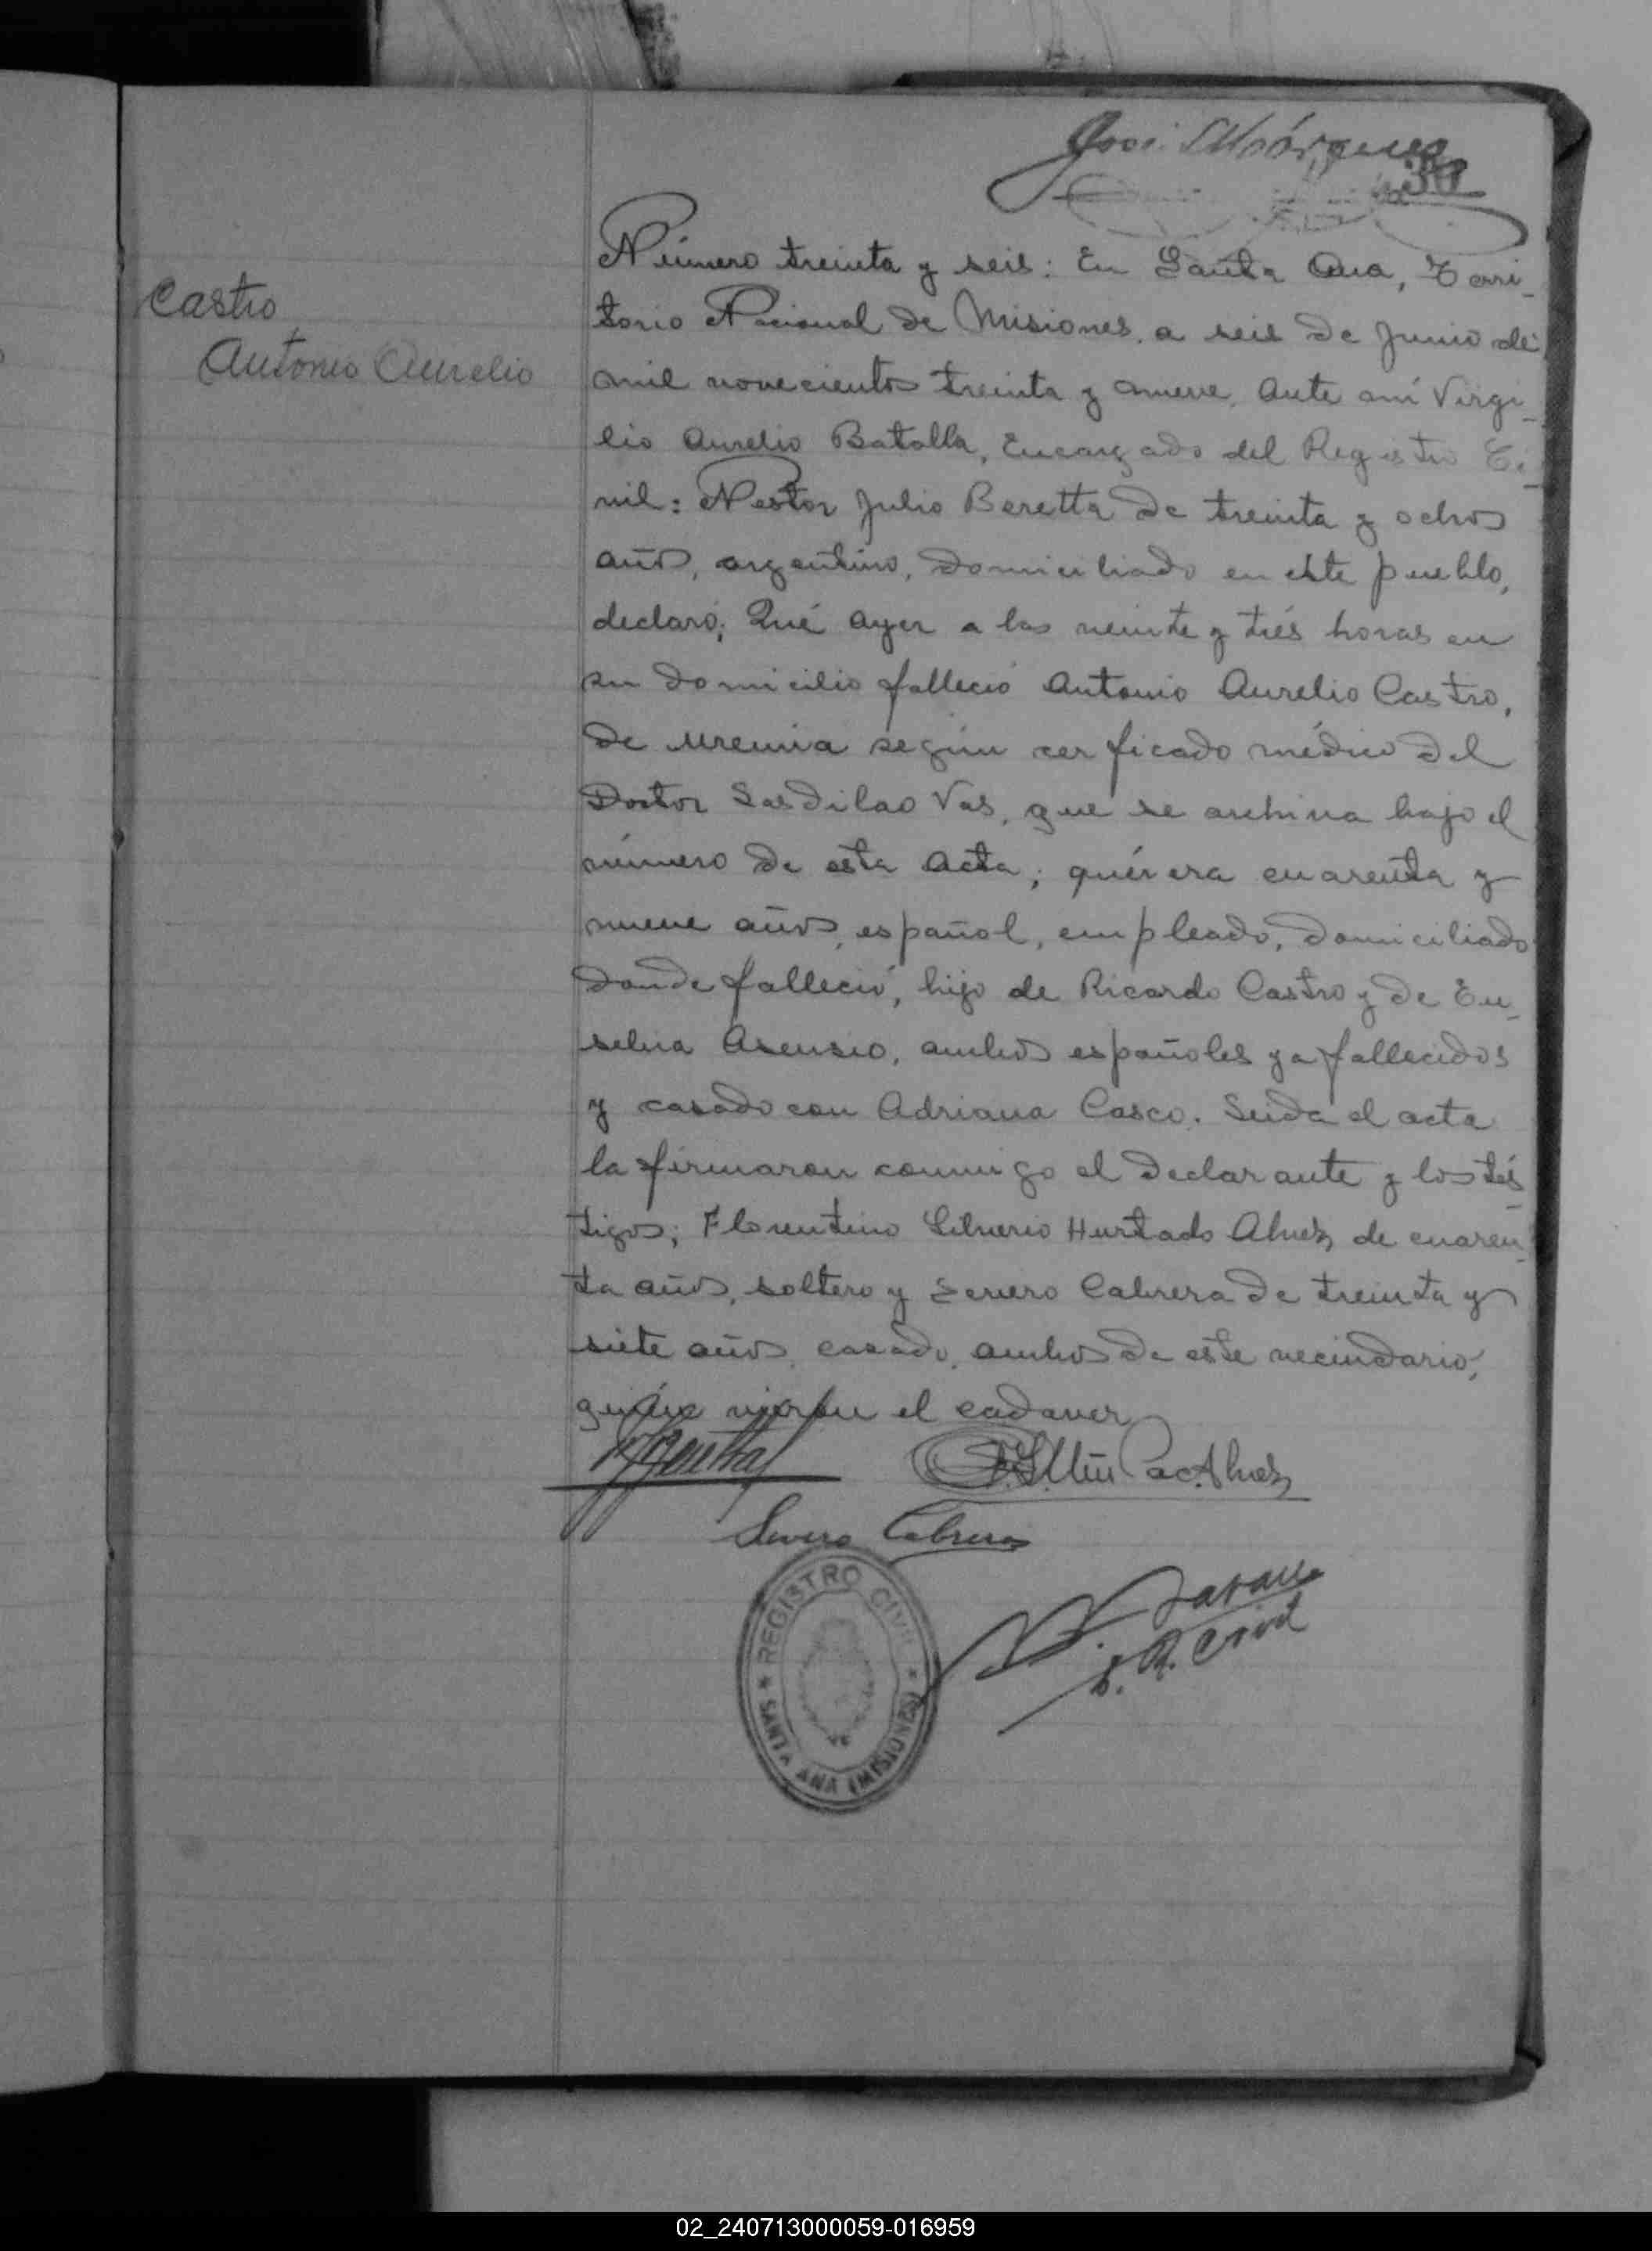 José Márquez
36
Castro,
Antonio Aurelio
Número treinta y seis: En Santa Ana, Terri-
torio Nacional de Misiones, a seis de Junio de
mil novecientos treinta y nueve. Ante mí Virgi-
lio Aurelio Batalla, Encargado del Registro Ci-
vil: Nestor Julio Beretta de treinta y ochos
años, argentino, domiciliado en este pueblo,
declaró; Qué ayer a las veinte y trés horas en
su domicilio falleció Antonio Aurelio Castro,
de uremia según cerficado médico del
Doctor Lasdilao Vas, que se archiva bajo el
número de esta acta; quién era cuarenta y
nueve años, español, empleado, domiciliado
donde falleció, hijo de Ricardo Castro y de Eu-
sebia Asensio, ambos españoles ya fallecidos
y casado con Adriana Casco. Leida el acta
la firmaron conmigo el declarante y los tés-
tigos; Florentino Liberio Hurtado Alvez de cuaren-
ta años, soltero y Severo Cabrera de treinta y
siete años, casado, ambos de este vecindario,
quiénes vieron el cadaver
Severo Cabrera
E. R. Civil
REGISTRO CIVIL
SANTA ANA (MISIONES)
02_240713000059-016959